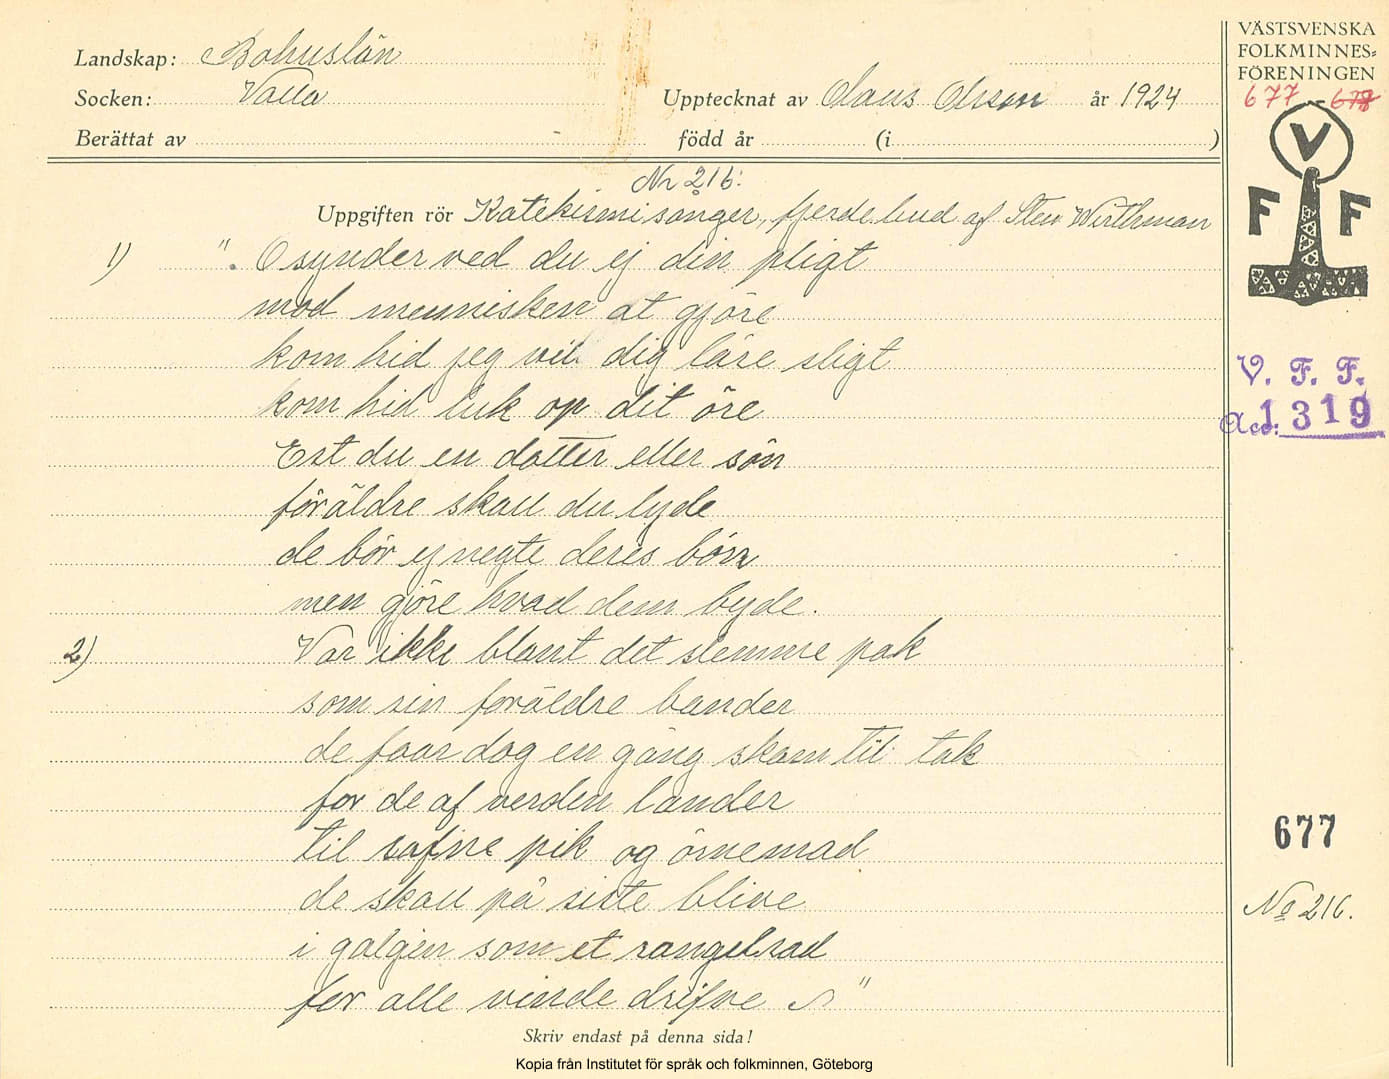 Landskap: Bohuslän
Socken: Valla
Upptecknat av Claus Olsson år 1924
Berättat av
född år (i )
VÄSTSVENSKA
FOLKMINNES=
FÖRENINGEN
677 - 678
V
F F
Nr 216.
Uppgiften rör Katekismisånger, fjerde bud af Sten Wirthman
1) ". O synder ved du ej din pligt
mod mennisken at gjöre
kom hid jeg vil dig läre sligt
kom hid luk op dit öre
Est du en dotter eller sön
föräldre skall du lyde
de bör ej negte deres bön
men gjöre hvad dem byde.
2) Var ikke blant det slemme pak
som sin foräldre bander
de faar dog en gång skam til tak
for de af verden lander
til rafne pik og örnemad
de skall på siste blive
i galgen som et rangelrad
for alle vinde drifve "
V. F. F.
Acc: 1319
677
No 216.
Skriv endast på denna sida!
Kopia från Institutet för språk och folkminnen, Göteborg